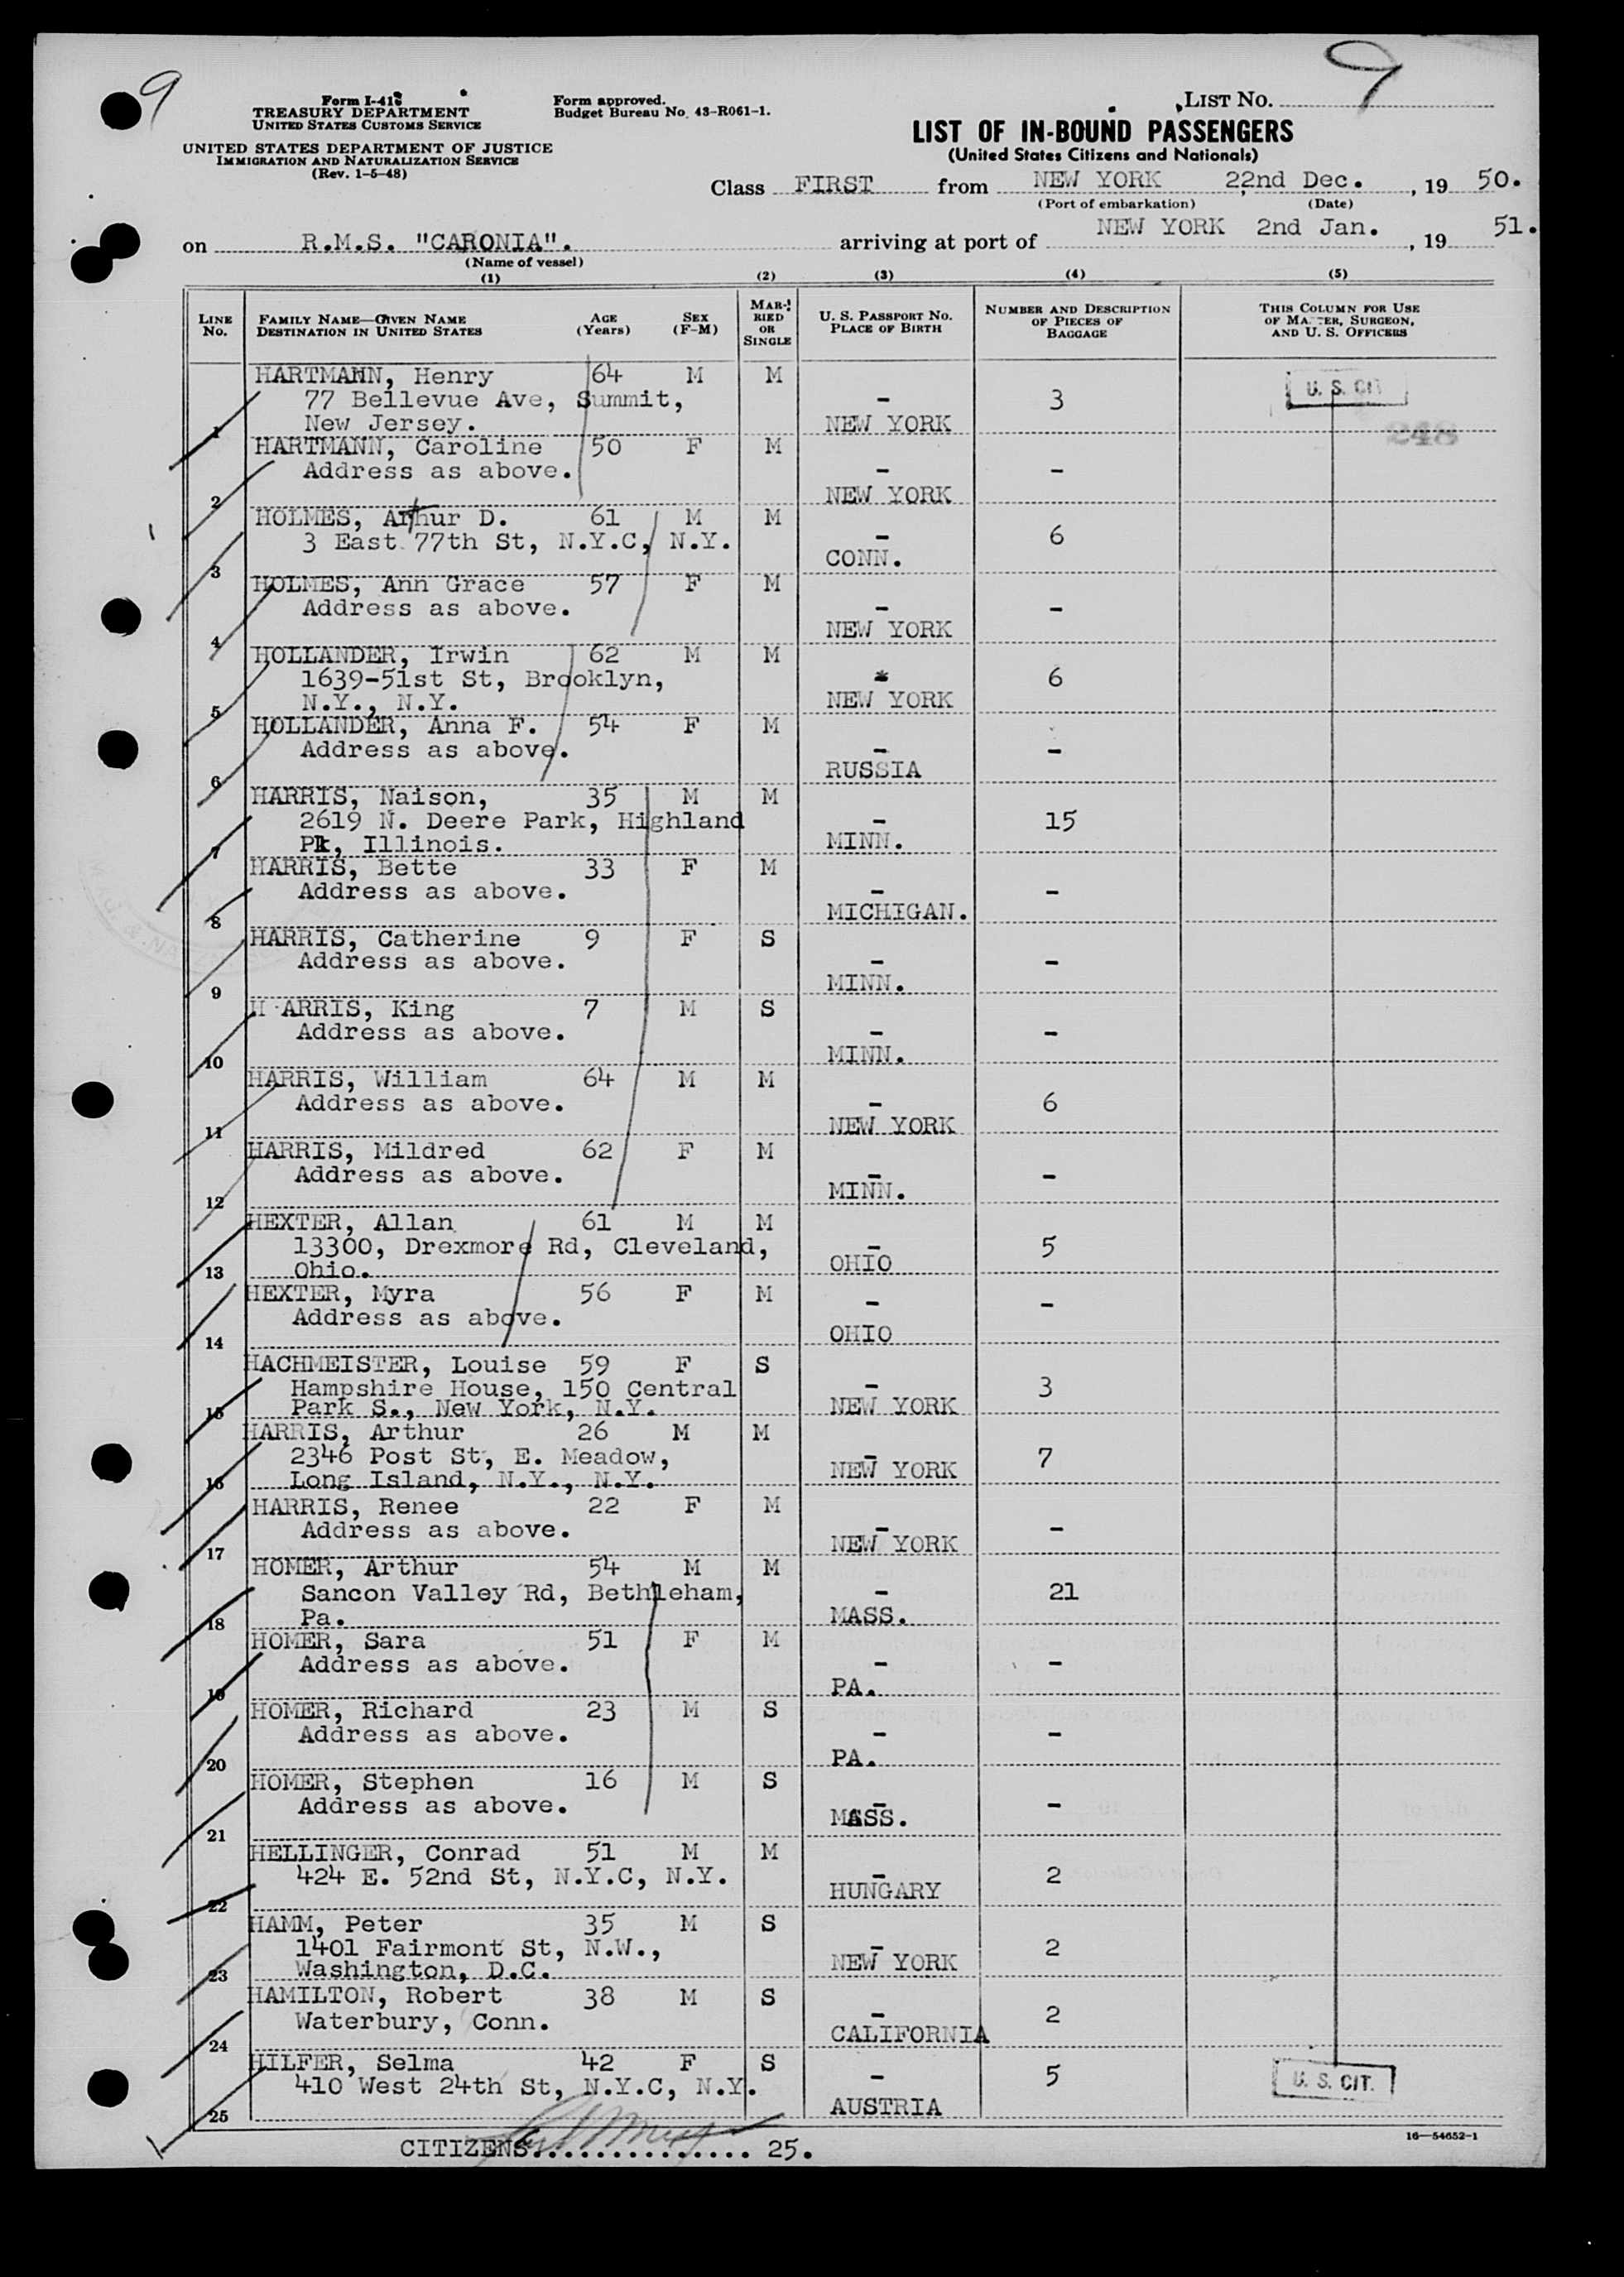 9
Form I-418
TREASURY DEPARTMENT
UNITED STATES CUSTOMS SERVICE
UNITED STATES DEPARTMENT OF JUSTICE
IMMIGRATION AND NATURALIZATION SERVICE
(Rev. 1-5-48)
Form approved.
Budget Bureau No. 43-R061-1.
LIST NO. 9
LIST OF IN-BOUND PASSENGERS
(United States Citizens and Nationals)
Class FIRST from NEW YORK 22nd Dec. , 19 50.
(Port of embarkation) (Date)
on R.M.S. "CARONIA". arriving at port of NEW YORK 2nd Jan. , 19 51.
(Name of vessel)
(1) (2) (3) (4) (5)
LINE NO. FAMILY NAME—GIVEN NAME DESTINATION IN UNITED STATES AGE (Years) SEX (F-M) MARRIED OR SINGLE U. S. PASSPORT NO. PLACE OF BIRTH NUMBER AND DESCRIPTION OF PIECES OF BAGGAGE THIS COLUMN FOR USE OF MASTER, SURGEON, AND U. S. OFFICERS
HARTMANN, Henry 64 M M
77 Bellevue Ave, Summit, - 3 U. S. CIT
1 New Jersey. NEW YORK 248
HARTMANN, Caroline 50 F M
Address as above. - -
2 NEW YORK
HOLMES, Arthur D. 61 M M
3 East 77th St, N.Y.C, N.Y. - 6
3 CONN.
HOLMES, Ann Grace 57 F M
Address as above. - -
4 NEW YORK
HOLLANDER, Irwin 62 M M
1639-51st St, Brooklyn, 6
5 N.Y., N.Y. NEW YORK
HOLLANDER, Anna F. 54 F M
Address as above. - -
6 RUSSIA
HARRIS, Naison, 35 M M
2619 N. Deere Park, Highland - 15
7 Pk, Illinois. MINN.
HARRIS, Bette 33 F M
Address as above. - -
8 MICHIGAN.
HARRIS, Catherine 9 F S
Address as above. - -
9 MINN.
H ARRIS, King 7 M S
Address as above. - -
10 MINN.
HARRIS, William 64 M M
Address as above. - 6
11 NEW YORK
HARRIS, Mildred 62 F M
Address as above. - -
12 MINN.
HEXTER, Allan 61 M M
13300, Drexmore Rd, Cleveland, - 5
13 Ohio. OHIO
HEXTER, Myra 56 F M
Address as above. - -
14 OHIO
HACHMEISTER, Louise 59 F S
Hampshire House, 150 Central - 3
15 Park S., New York, N.Y. NEW YORK
HARRIS, Arthur 26 M M
2346 Post St, E. Meadow, - 7
16 Long Island, N.Y., N.Y. NEW YORK
HARRIS, Renee 22 F M
Address as above. - -
17 NEW YORK
HOMER, Arthur 54 M M
Sancon Valley Rd, Bethleham, - 21
18 Pa. MASS.
HOMER, Sara 51 F M
Address as above. - -
19 PA.
HOMER, Richard 23 M S
Address as above. - -
20 PA.
HOMER, Stephen 16 M S
Address as above. - -
21 MASS.
HELLINGER, Conrad 51 M M
424 E. 52nd St, N.Y.C, N.Y. - 2
22 HUNGARY
HAMM, Peter 35 M S
1401 Fairmont St, N.W., - 2
23 Washington, D.C. NEW YORK
HAMILTON, Robert 38 M S
Waterbury, Conn. - 2
24 CALIFORNIA
HILFER, Selma 42 F S
410 West 24th St, N.Y.C, N.Y. - 5 U. S. CIT.
25 AUSTRIA
CITIZENS................ 25.
16—54652-1